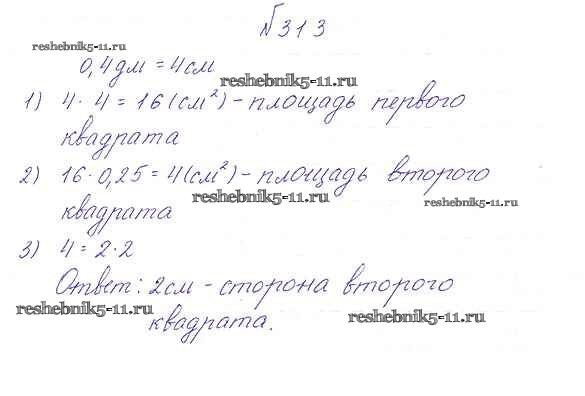 №313
reshebnik5-11.ru
0,4дм = 4см
reshebnik5-11.ru
1) 4 · 4 = 16 (см²) - площадь первого
квадрата
2) 16 · 0,25 = 4 (см²) - площадь второго
reshebnik5-11.ru
квадрата
reshebnik5-11.ru
3) 4 = 2 · 2
Ответ: 2см - сторона второго
reshebnik5-11.ru
квадрата.
reshebnik5-11.ru